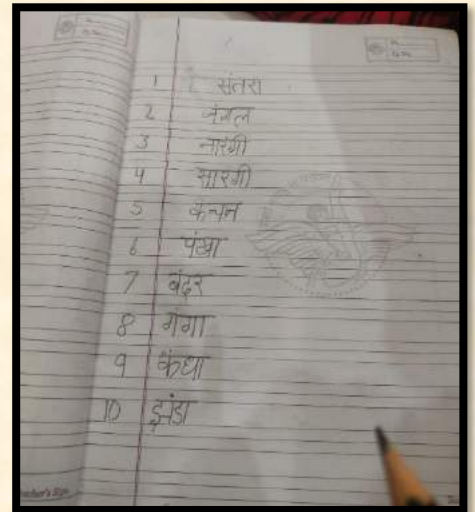 1 संतरा
2 जंगल
3 नारंगी
4 सारंगी
5 कंचन
6 पंखा
7 बंदर
8 गंगा
9 कंघा
10 झंडा